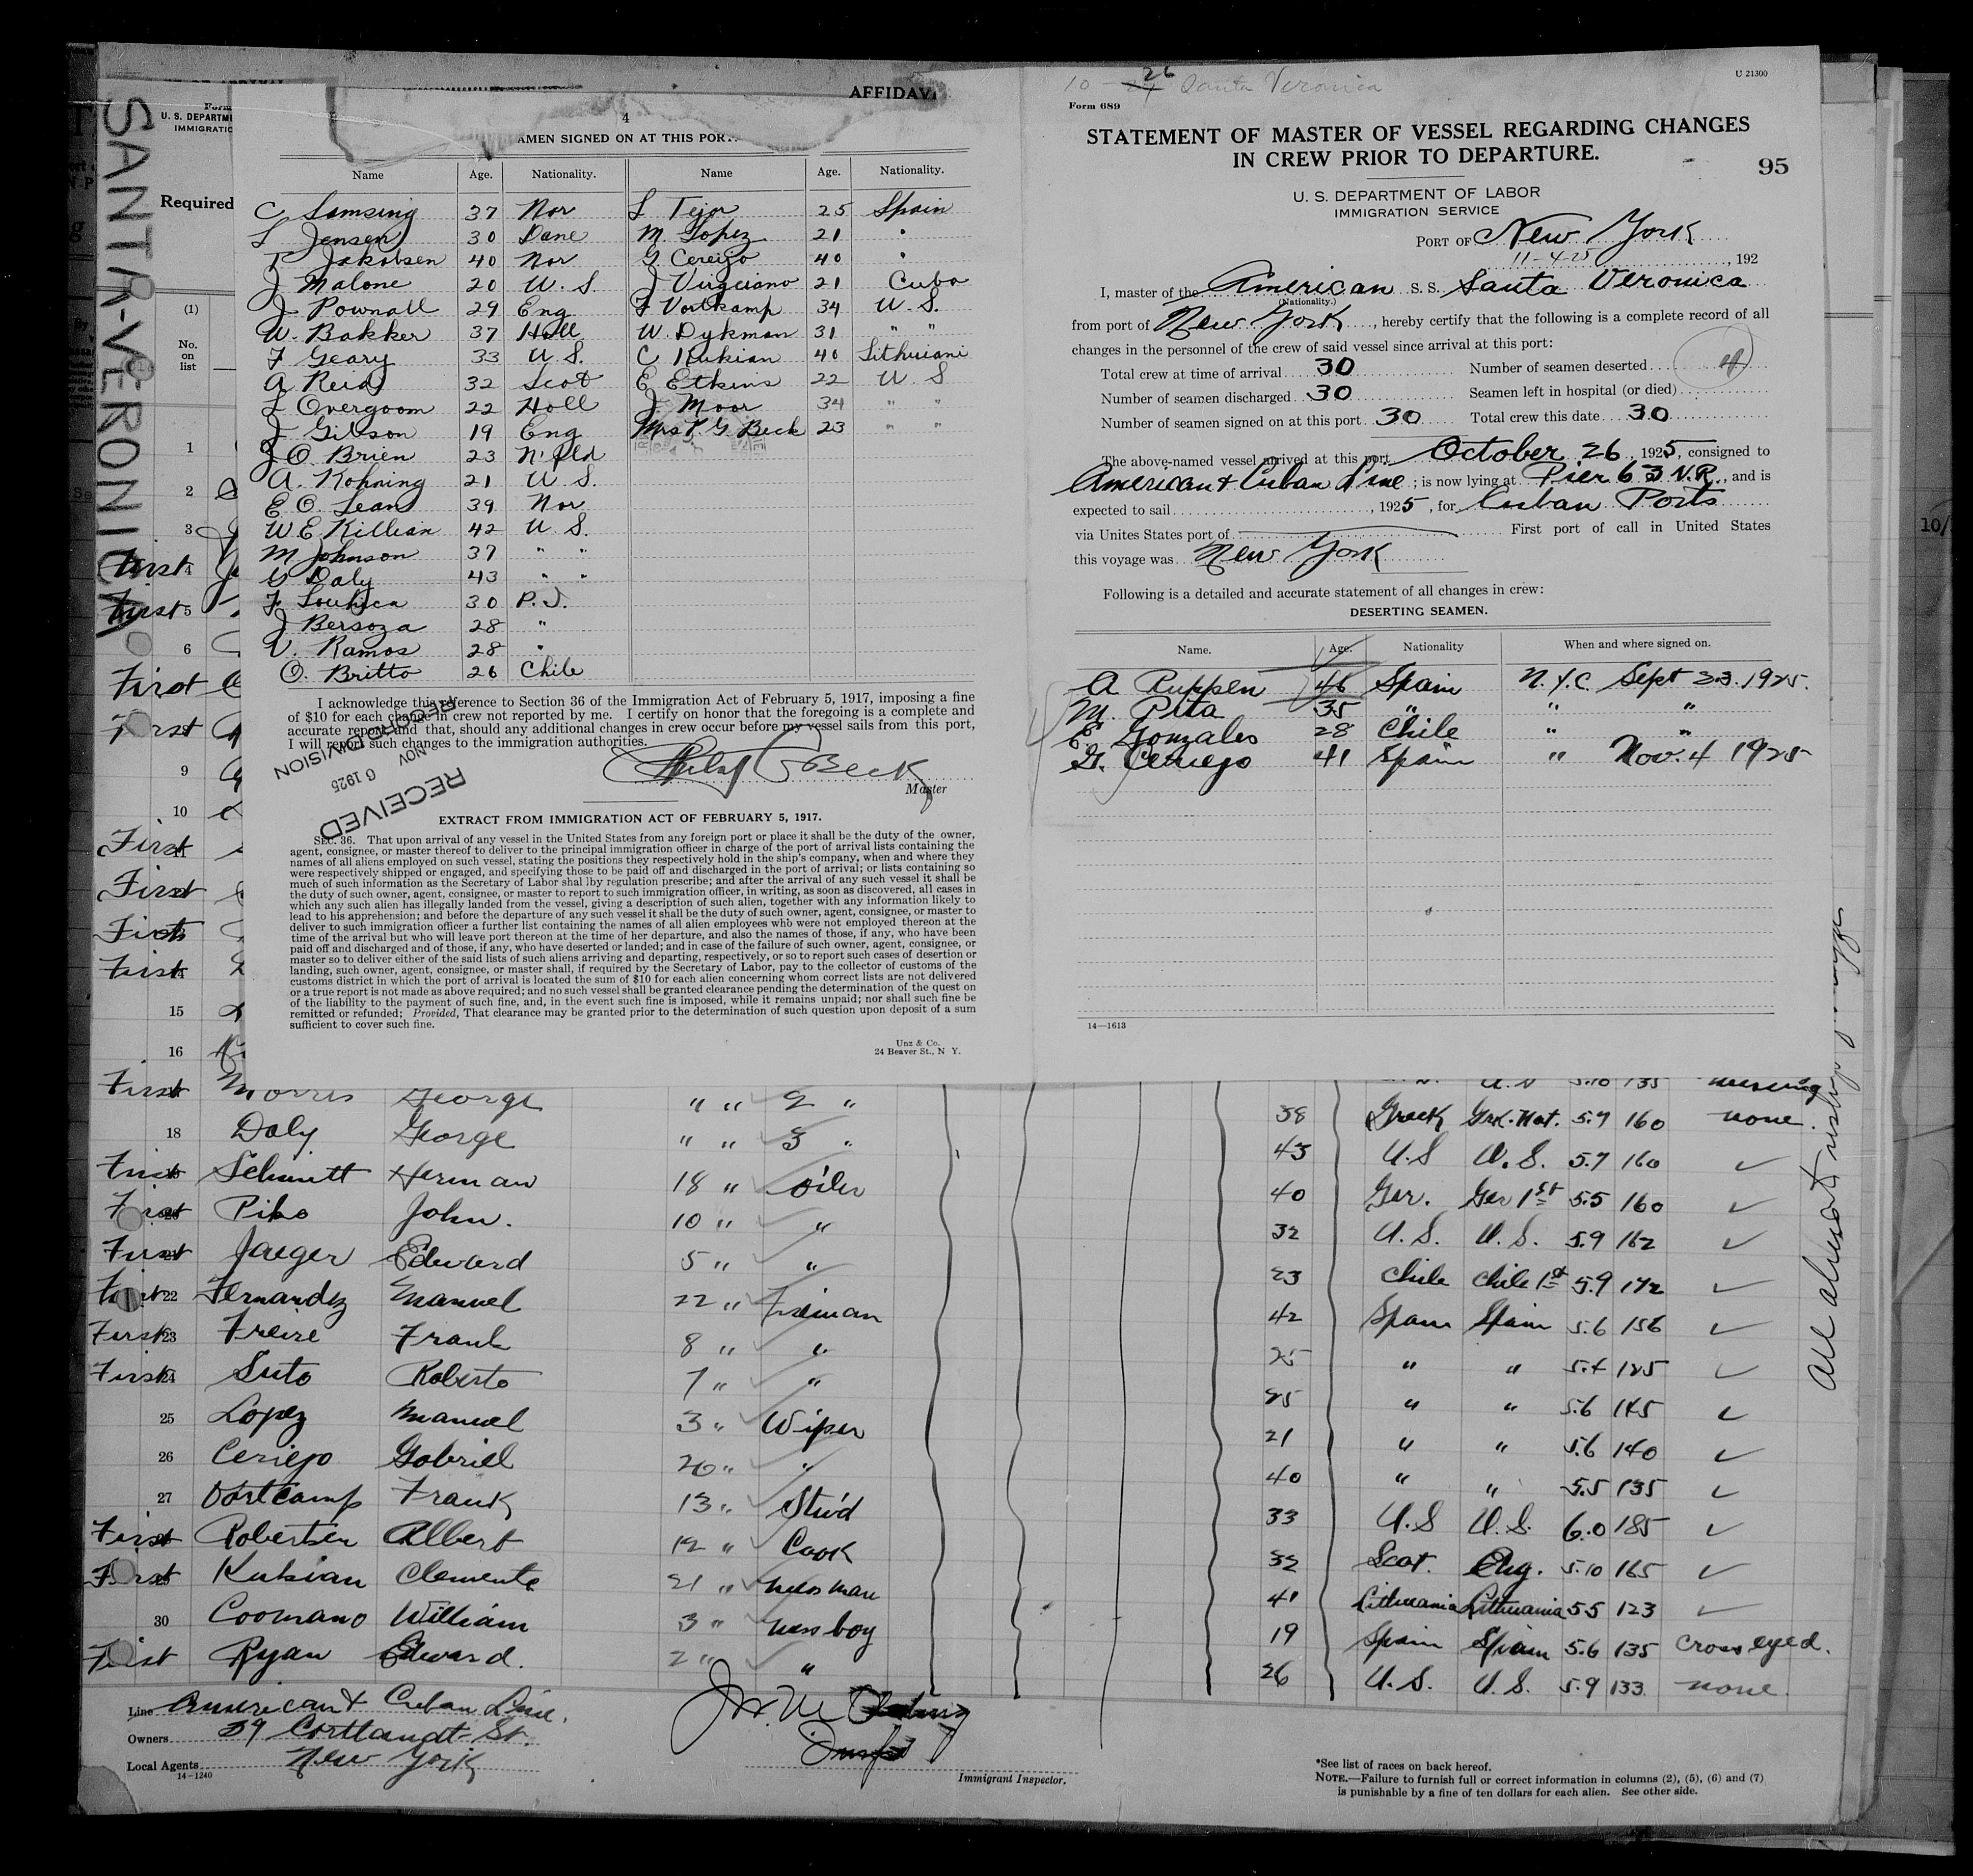 SANTA-VERONICA
Form
U. S. DEPARTM
IMMIGRATIO
Required
(1)
No.
on
list
AFFIDAV
4
AMEN SIGNED ON AT THIS POR
Name Age. Nationality. Name Age. Nationality.
C Samsing 37 Nor L Tejor 25 Spain
S Jensen 30 Dane M. Lopez 21 "
P Jakobsen 40 Nor G. Cereijo 40 "
J Malone 20 U. S. J Virgciano 21 Cuba
J. Pownall 29 Eng F Vortkamp 34 U. S.
W. Bakker 37 Holl W. Dykman 31 " "
F Geary 33 U. S. C Kukian 40 Lithuiani
A Reid 32 Scot E Etkins 22 U S
L Overgoom 22 Holl J. Moor 34 " "
J Gibson 19 Eng Mrs P. G Beck 23 " "
J O. Brien 23 N'Fld
A. Kohning 21 U S.
E O. Lean 39 Nor
W E Killian 42 U S.
M Johnson 37 " "
G Daly 43 " "
F. Soukica 30 P. I.
J Bersoza 28 "
V. Ramos 28 "
O. Britto 26 Chile
I acknowledge this reference to Section 36 of the Immigration Act of February 5, 1917, imposing a fine
of $10 for each change in crew not reported by me. I certify on honor that the foregoing is a complete and
accurate report and that, should any additional changes in crew occur before my vessel sails from this port,
I will report such changes to the immigration authorities.
Beck
Master
RECEIVED
NOV 6 1925
RECORD DIVISION
EXTRACT FROM IMMIGRATION ACT OF FEBRUARY 5, 1917.
SEC. 36. That upon arrival of any vessel in the United States from any foreign port or place it shall be the duty of the owner,
agent, consignee, or master thereof to deliver to the principal immigration officer in charge of the port of arrival lists containing the
names of all aliens employed on such vessel, stating the positions they respectively hold in the ship's company, when and where they
were respectively shipped or engaged, and specifying those to be paid off and discharged in the port of arrival; or lists containing so
much of such information as the Secretary of Labor shal lby regulation prescribe; and after the arrival of any such vessel it shall be
the duty of such owner, agent, consignee, or master to report to such immigration officer, in writing, as soon as discovered, all cases in
which any such alien has illegally landed from the vessel, giving a description of such alien, together with any information likely to
lead to his apprehension; and before the departure of any such vessel it shall be the duty of such owner, agent, consignee, or master to
deliver to such immigration officer a further list containing the names of all alien employees who were not employed thereon at the
time of the arrival but who will leave port thereon at the time of her departure, and also the names of those, if any, who have been
paid off and discharged and of those, if any, who have deserted or landed; and in case of the failure of such owner, agent, consignee, or
master so to deliver either of the said lists of such aliens arriving and departing, respectively, or so to report such cases of desertion or
landing, such owner, agent, consignee, or master shall, if required by the Secretary of Labor, pay to the collector of customs of the
customs district in which the port of arrival is located the sum of $10 for each alien concerning whom correct lists are not delivered
or a true report is not made as above required; and no such vessel shall be granted clearance pending the determination of the quest on
of the liability to the payment of such fine, and, in the event such fine is imposed, while it remains unpaid; nor shall such fine be
remitted or refunded; Provided, That clearance may be granted prior to the determination of such question upon deposit of a sum
sufficient to cover such fine.
Unz & Co.
24 Beaver St., N Y.
10 - 26 Santa Veronica
U 21300
Form 689
STATEMENT OF MASTER OF VESSEL REGARDING CHANGES
IN CREW PRIOR TO DEPARTURE.
95
U. S. DEPARTMENT OF LABOR
IMMIGRATION SERVICE
PORT OF New York
11-4-25, 192
I, master of the American S. S. Santa Veronica
(Nationality.)
from port of New York, hereby certify that the following is a complete record of all
changes in the personnel of the crew of said vessel since arrival at this port:
Total crew at time of arrival 30 Number of seamen deserted 4
Number of seamen discharged 30 Seamen left in hospital (or died)
Number of seamen signed on at this port 30 Total crew this date 30
The above-named vessel arrived at this port October 26, 1925, consigned to
American & Cuban Line; is now lying at Pier 63 N.R., and is
expected to sail , 1925, for Cuban Ports
via Unites States port of First port of call in United States
this voyage was New York
Following is a detailed and accurate statement of all changes in crew:
DESERTING SEAMEN.
Name. Age. Nationality When and where signed on.
A Ruppen 46 Spain N.Y.C. Sept 23. 1925.
M. Pita 35 " " "
E. Gonzales 28 Chile " "
G. Ceriejo 41 Spain " Nov. 4 1925
14—1613
1
2
3
First 4
First 5
6
First
First
9
10
First 11
First
First
First
15
16
First Morris George " " 2 " 38 Greek Grk. Nat. 5.7 160 none.
18 Daly George " " 3 " 43 U.S U.S. 5.7 160
First Schmitt Herman 18 " oiler 40 Ger. Ger 1st 5.5 160
First 20 Piko John. 10 " " 32 U.S. U.S. 5.9 162
First 21 Jaeger Edward 5 " " 23 Chile Chile 1st 5.9 172
First 22 Fernandez Manuel 22 " Fireman 42 Spain Spain 5.6 156
First 23 Freire Frank 8 " " 25 " " 5.4 125
First 24 Suto Roberto 7 " " 25 " " 5.6 145
25 Lopez Manuel 3 " Wiper 21 " " 5.6 140
26 Ceriejo Gabriel 20 " " 40 " " 5.5 135
27 Vortcamp Frank 13 " Stu'd 33 U.S U.S. 6.0 185
First Robertson Albert 12 " Cook 32 Scot. Eng. 5.10 165
First 29 Kukian Clemente 21 " mess man 41 Lithuania Lithuania 5.5 123
30 Coomano William 3 " mess boy 19 Spain Spain 5.6 135 cross eyed.
First Ryan Edward. 2 " " 26 U.S. U.S. 5.9 133 none.
Line American & Cuban Line.
Owners 39 Cortlandt St.
Local Agents New York
14-1240
Immigrant Inspector.
*See list of races on back hereof.
NOTE.—Failure to furnish full or correct information in columns (2), (5), (6) and (7)
is punishable by a fine of ten dollars for each alien. See other side.
10/